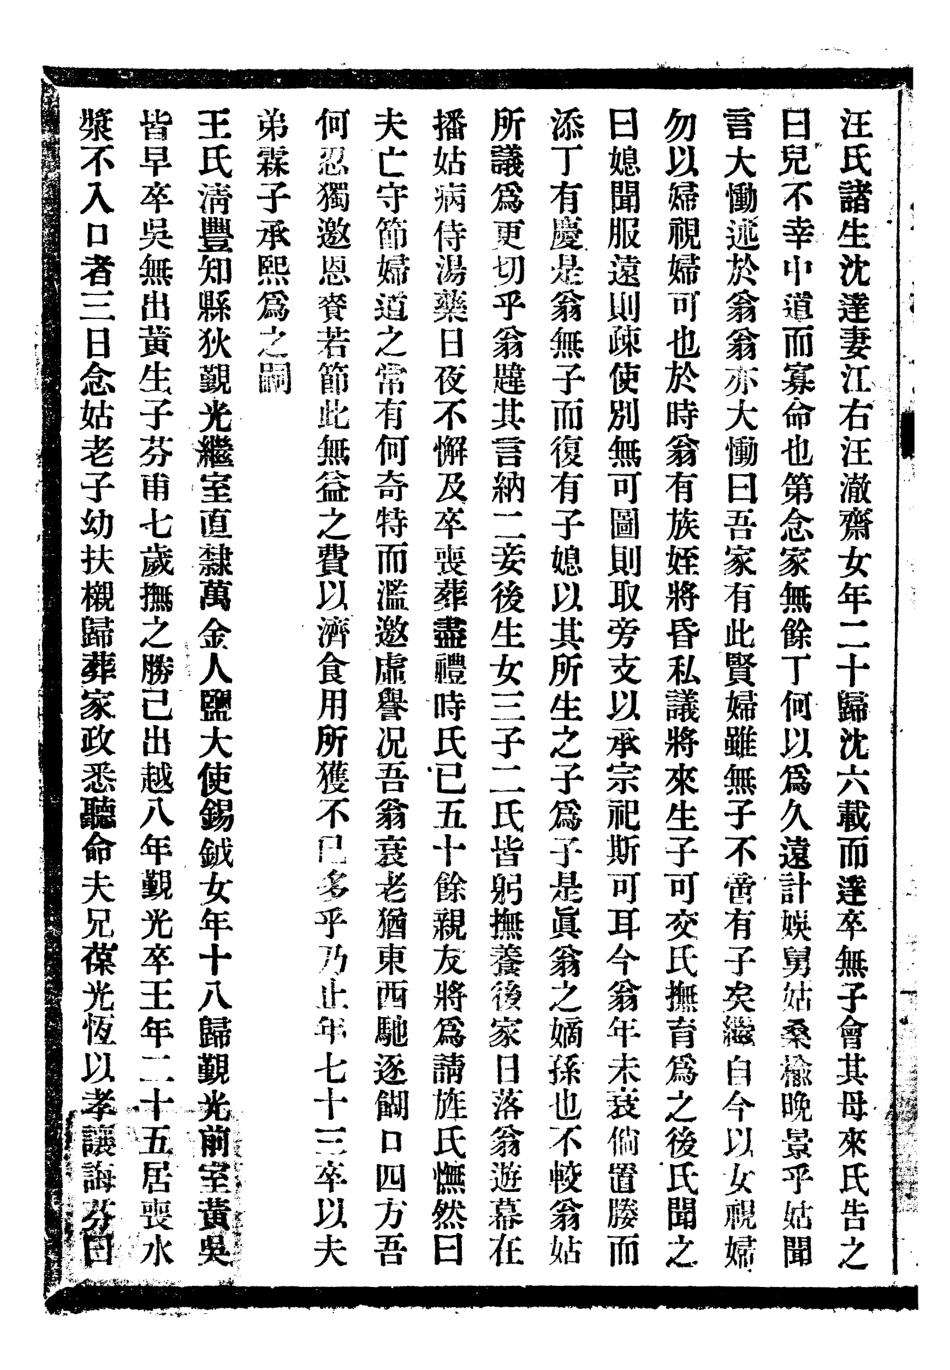 汪氏諸生沈達妻江右汪澈齋女年二十歸沈六載而達卒無子會其母來氏告之
曰兒不幸中道而寡命也第念家無餘丁何以爲久遠計娛舅姑桑榆晚景乎姑聞
言大慟述於翁翁亦大慟曰吾家有此賢婦雖無子不啻有子矣繼自今以女視婦
勿以婦視婦可也於時翁有族姪將昏私議將來生子可交氏撫育爲之後氏聞之
曰媳聞服遠則疎使別無可圖則取旁支以承宗祀斯可耳今翁年未衰倘置媵而
添丁有慶是翁無子而復有子媳以其所生之子爲子是眞翁之嫡孫也不較翁姑
所議爲更切乎翁韙其言納二妾後生女三子二氏皆躬撫養後家日落翁遊幕在
播姑病侍湯藥日夜不懈及卒喪葬盡禮時氏已五十餘親友將爲請旌氏憮然曰
夫亡守節婦道之常有何奇特而濫邀虛譽况吾翁衰老猶東西馳逐餬口四方吾
何忍獨邀恩賚若節此無益之費以濟食用所獲不已多乎乃止年七十三卒以夫
弟霖子承熙爲之嗣
王氏淸豐知縣狄觀光繼室直隸萬金人鹽大使錫鉞女年十八歸觀光前室黃吳
皆早卒吳無出黃生子芬甫七歲撫之勝己出越八年觀光卒王年二十五居喪水
漿不入口者三日念姑老子幼扶櫬歸葬家政悉聽命夫兄葆光恆以孝讓誨芬曰